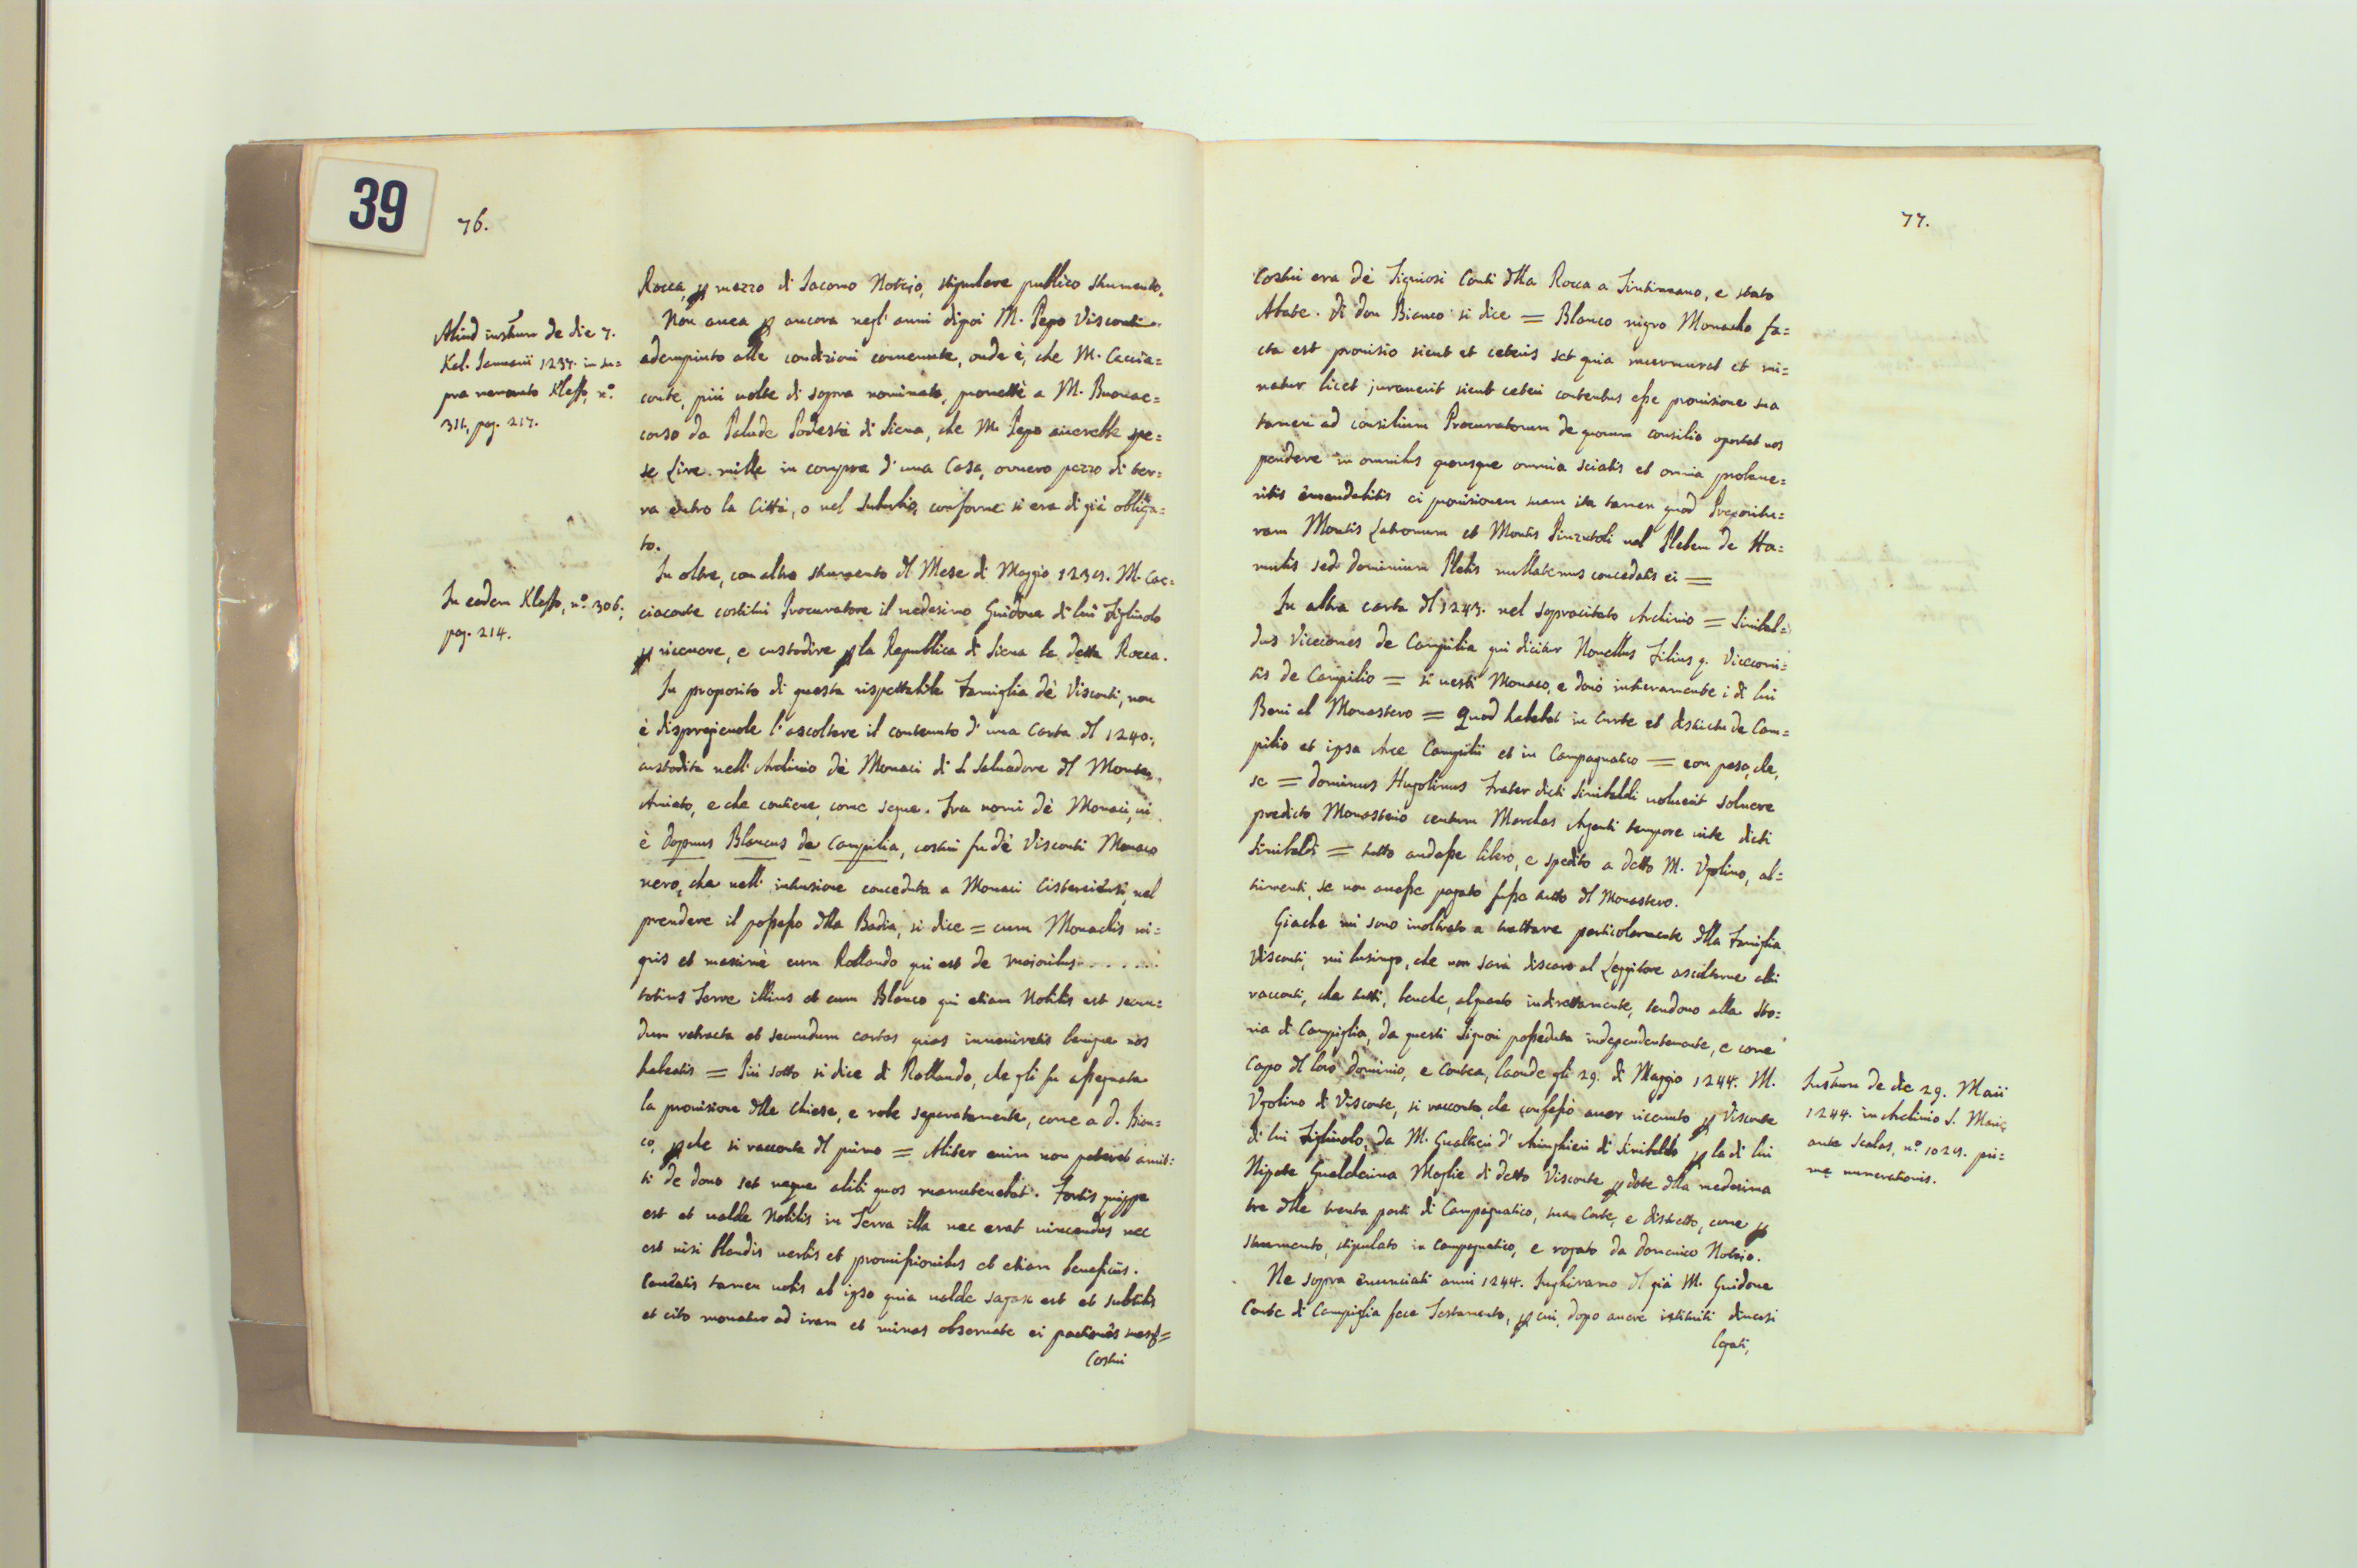 39
76.
Aliud instrum de die 7.
Kal. Januarii 1237. in su=
pra Kleffo, n.º
311, pag. 217.
In eodem Kleffo, n.º 306;
pag. 214.
Rocca, p mezzo di Jacomo Notaio, stipulare publico strumento.
Non avea p ancora negl' anni dipoi M. Pepo Visconti
adempiuto alle condizioni convenute, onde è, che M. Caccia=
conte, più volte di sopra nominato, promettè a M. Bonac=
corso da Palude Podestà di Siena, che M. Pepo averebbe spe=
se Lire mille in compra d' una Casa, ovvero pezzo di ter=
ra entro la Città, o nel Suburbio, conforme si era di già obliga=
to.
In oltre, con altro strumento dl Mese di Maggio 1239. M. Cac=
ciaconte costituì Procuratore il medesimo Guidone di lui Figliuolo
p ricevere, e custodire p la Republica di Siena la detta Rocca.
In proposito di questa rispettabile Famiglia dè Visconti, non
è dispregievole l' ascoltare il contenuto d' una Carta dl 1240.,
custodita nell' Archivio dè Monaci di S. Salvadore dl Monte
Amiato, e che contiene, come segue. Fra nomi dè Monaci, vi
è Dopnus Blancus de Campilia, costui fu dè Visconti Monaco
nero, che nell' intrusione conceduta a Monaci Cisterciensi, nel
prendere il possesso dlla Badia, si dice = cum Monachis ni=
gris et maximè cum Rollando qui est de maioribus . . . . . .
totius Terre illius et cum Blanco qui etiam Nobilis est secun=
dum retracta et secundum cartas quas inveniretis benigne vos
habeatis = Più sotto si dice di Rollando, che gli fu assegnata
la provisione dlle Chiese, e robe separatamente, come a D. Bian=
co, p che si racconta dl primo = Aliter enim non poterat amit=
ti de dono set neque alibi quos manutenebat. Fortis quippe
est et valde Nobilis in Terra illa nec erat vincendus nec
est nisi blandis verbis et promissionibus et etiam beneficiis.
Caveatis tamen vobis ab ipso quia valde sagax est et subtilis
et cito movatur ad iram et minas observate ei pactiones suas =
Costui
77.
Costui era dè Signiosi Conti dlla Rocca a Tintinnano, e stato
Abate. Di don Bianco si dice = Blanco nigro Monacho fa=
cta est provisio sicut et ceteris set quia murmurat et mi=
natur licet juraverit sicut ceteri contentus esse provisione sua
tamen ad consilium Procuratorum de quorum consilio oportet vos
pendere in omnibus quousque omnia sciatis et omnia probave=
ritis emendabitis ei provisionem suam ita tamen quod Prepositu=
ram Montis Latronum et Montis Pinzutoli vel Plebem de La=
mulis sed dominium Plebis nullatenus concedatis ei =
In altra carta dl 1243. nel sopracitato Archivio = Sinibal=
dus Vicecomes de Campilia qui dicitur Novellus Filius q. Vicecomi=
tis de Campilio = si vestì Monaco, e donò intieramente i di lui
Beni al Monastero = Quod habebat in Curte et districtu de Cam=
pilio et ipsa Arce Campilii et in Campagnatico = con peso, che,
se = dominus Hugolinus Frater dicti Sinibaldi voluerit solvere
predicto Monasterio centum Marchas Argenti tempore vite dicti
Sinibaldi = tutto andasse libero, e spedito a detto M. Vgolino, al=
trimenti, se non avesse pagato fusse tutto dl Monastero.
Giache mi sono inoltrato a trattare particolarmente dlla Famiglia
Visconti, mi lusingo, che non sarà discaro al Leggitore ascoltarne altri
racconti, che tutti, benche, alquanto indirettamente, tendono alla Sto=
ria di Campiglia, da questi Signori posseduta independentemente, e come
Capo dl loro Dominio, e Contea, laonde gli 29. di Maggio 1244. M.
Vgolino di Visconte, si racconta, che confessò aver ricevuto p Visconte
di lui Figliuolo, da M. Gualtieri d' Aringhieri di Sinibaldo p la di lui
Nipote Gualdecina Moglie di detto Visconte p dote dlla medesima
tre dlle trenta parti di Campagnatico, sua Corte, e distretto, come p
strumento, stipulato in Campagnatico, e rogato da Domenico Notaio.
Ne sopra enunciati anni 1244. Inghiramo dl già M. Guidone
Conte di Campiglia fece Testamento, p cui, dopo avere istituiti diversi
legati,
Instrum de die 29. Maii
1244. in Archivio S. Marię
ante Scalas, n.º 1029. pri=
mę numerationis.